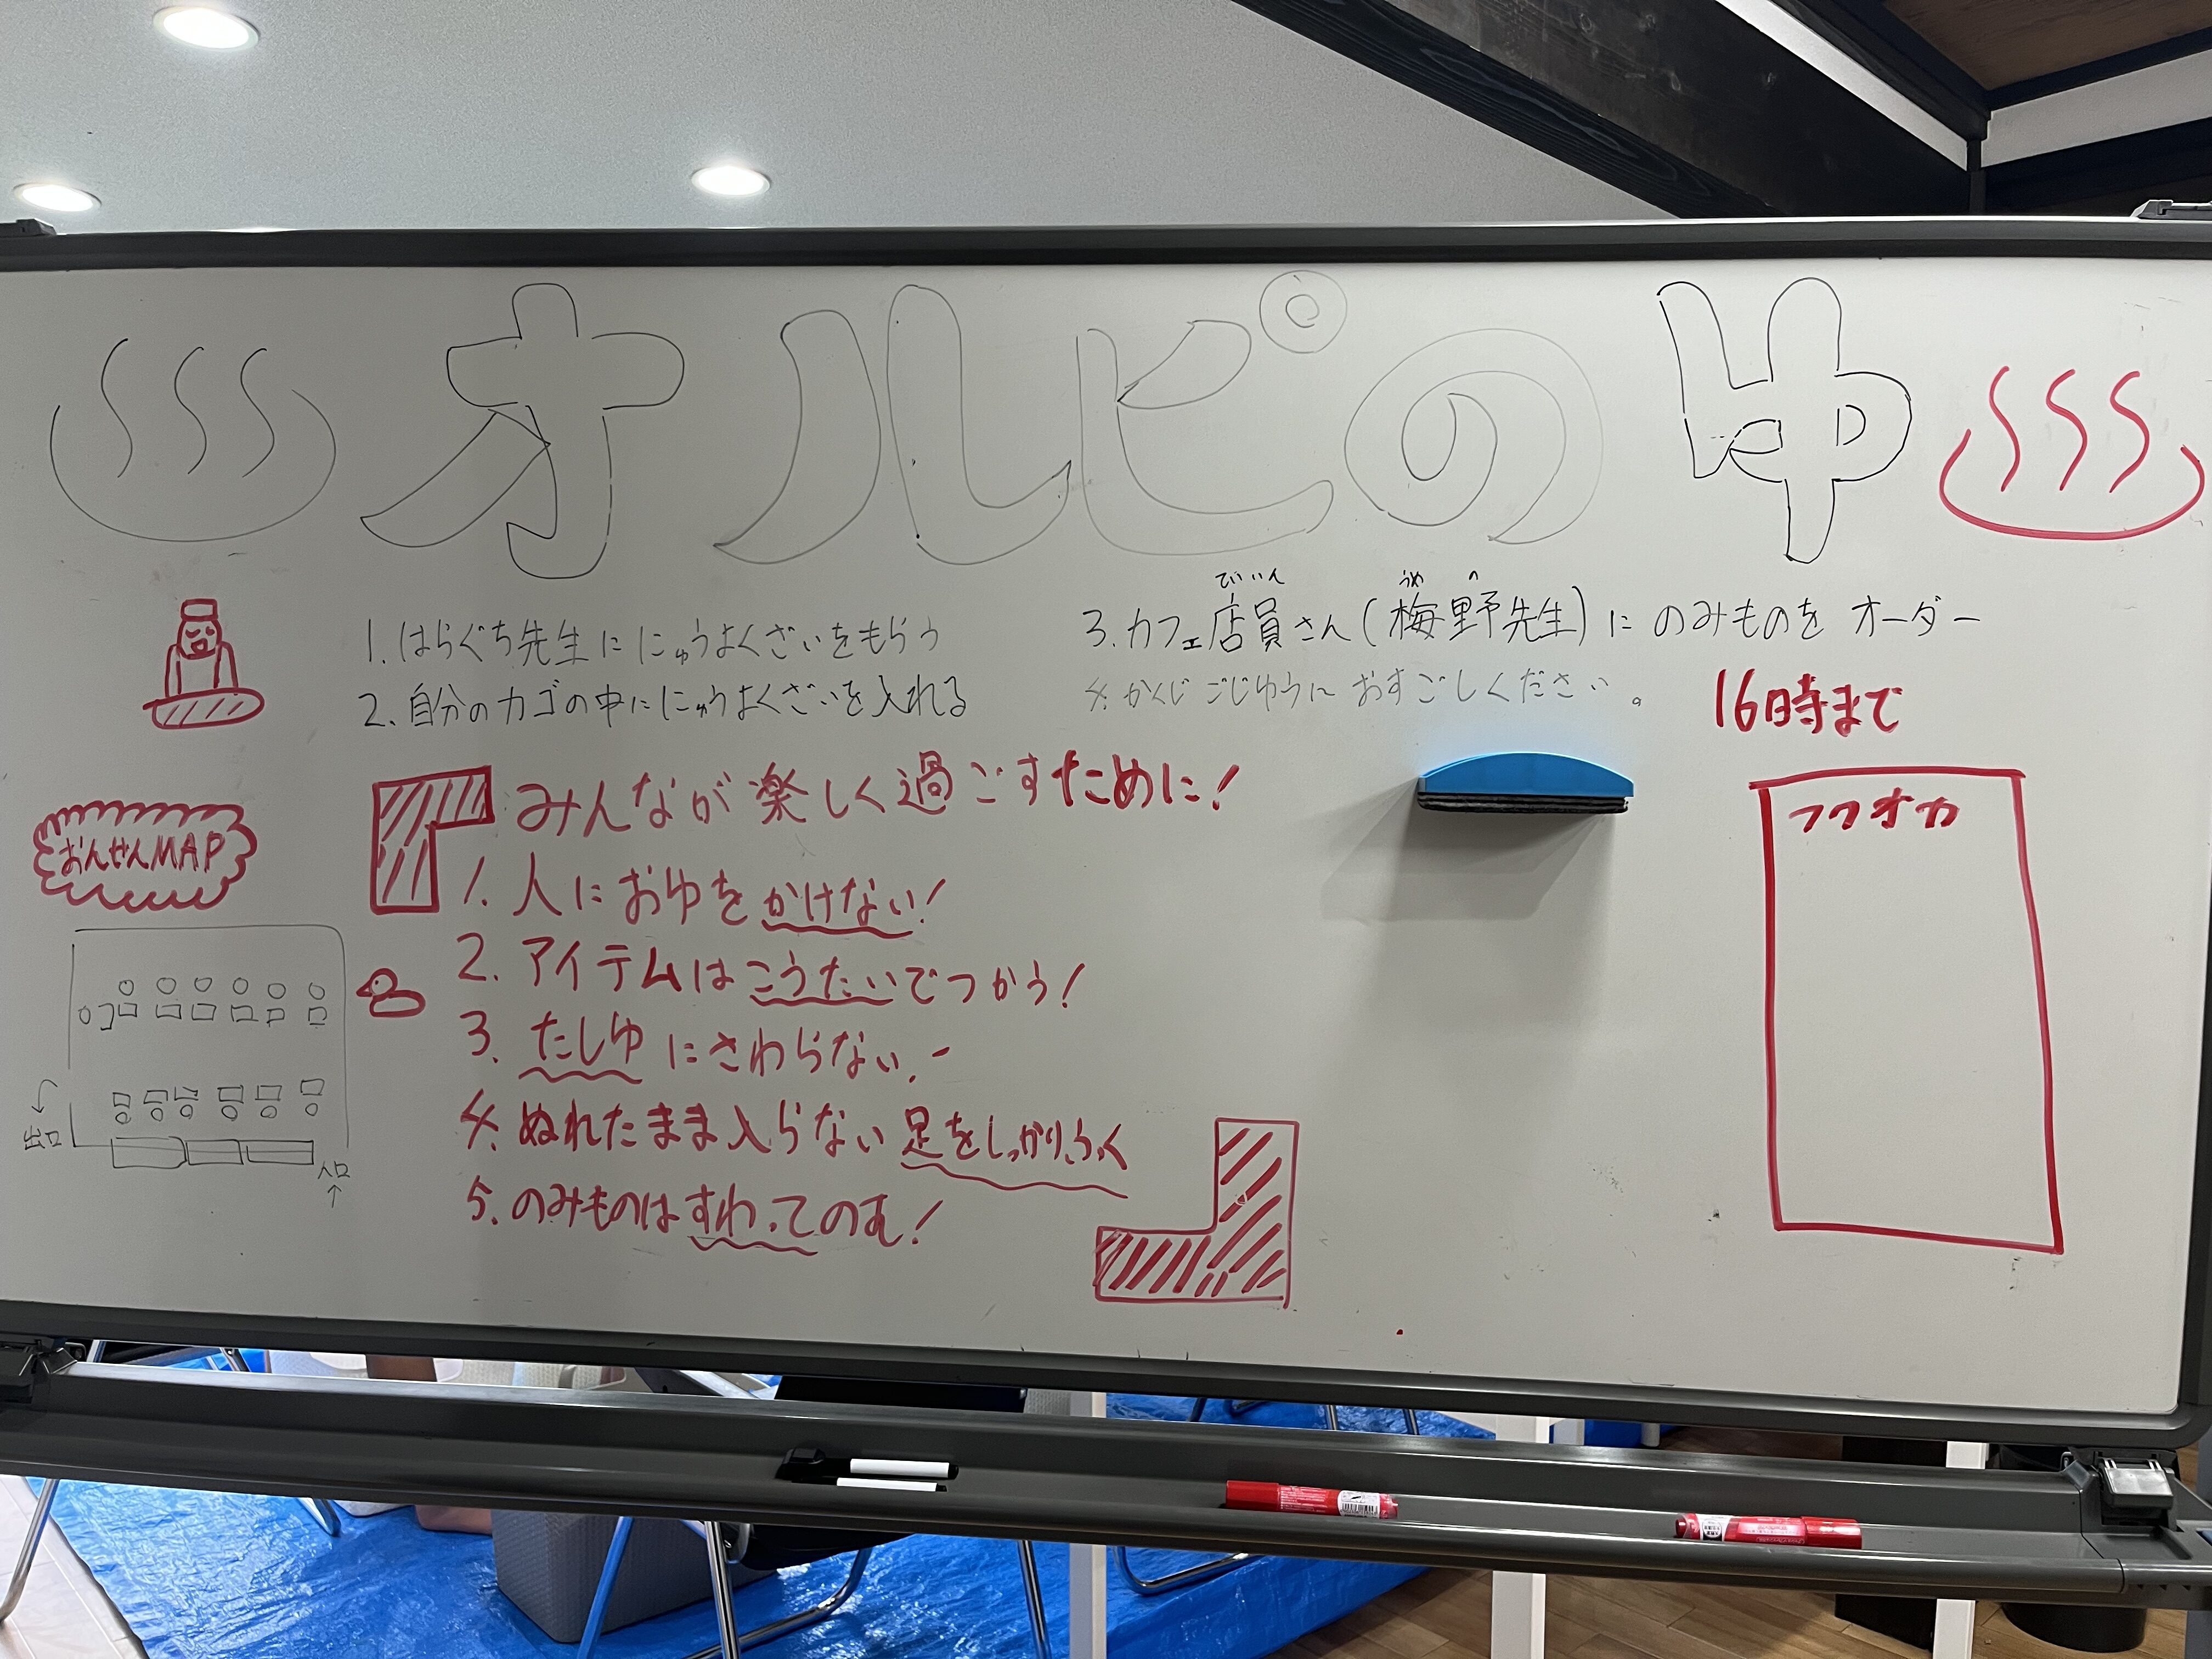 オルピのゆ
1. はらぐち先生に にゅうよくざいをもらう
2. 自分のカゴの中に にゅうよくざいを入れる
てんいん うめ の
3. カフェ店員さん(梅野先生)に のみものを オーダー
4. かくじ ごじゆうに おすごしください。
16時まで
みんなが楽しく過ごすために!
1. 人におゆをかけない!
2. アイテムはこうたいでつかう!
3. たしゆにさわらない!
4. ぬれたまま入らない 足をしっかりふく
5. のみものはすわってのむ!
おんせんMAP
出口
入口
フクオカ